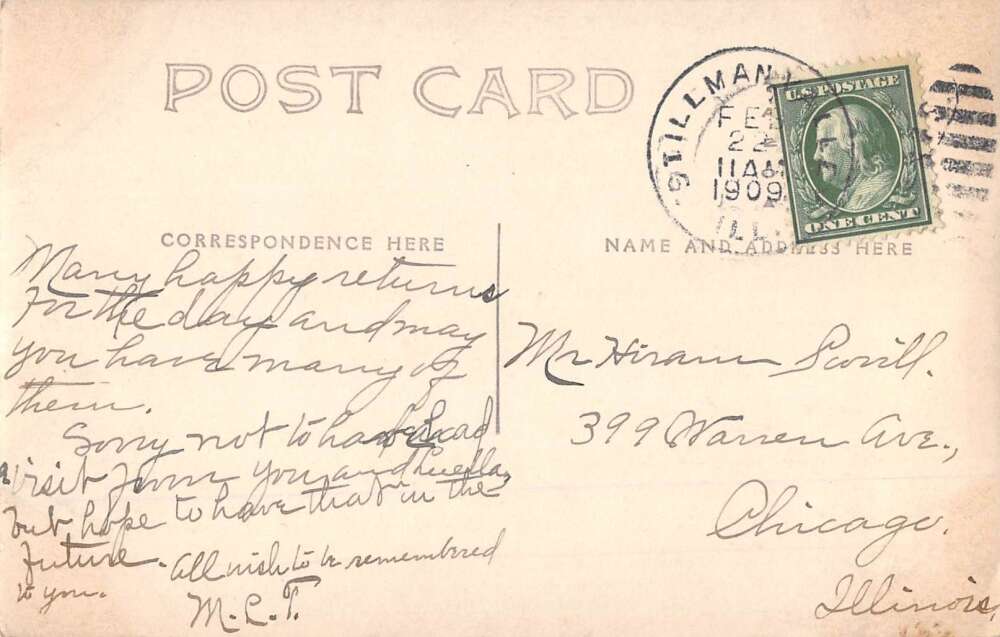 POST CARD
STILLMAN VALLEY
FEB
22
11 AM
1909
ILL.
U.S. POSTAGE
ONE CENT
CORRESPONDENCE HERE
NAME AND ADDRESS HERE
Many happy returns
for the day and may
you have many of
them.
Sorry not to have had
a visit from you and Luella,
but hope to have that in the
future. All wish to be remembered
to you.
M.L.T.
Mr Hiram Scovill.
399 Warren Ave.,
Chicago.
Illinois,